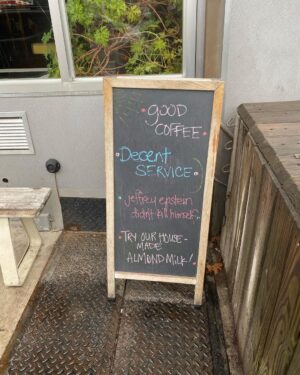 GOOD
COFFEE
Decent
SERVICE
jeffrey epstein
didn't kill himself
TRY OUR HOUSE-
MADE
ALMOND MILK!